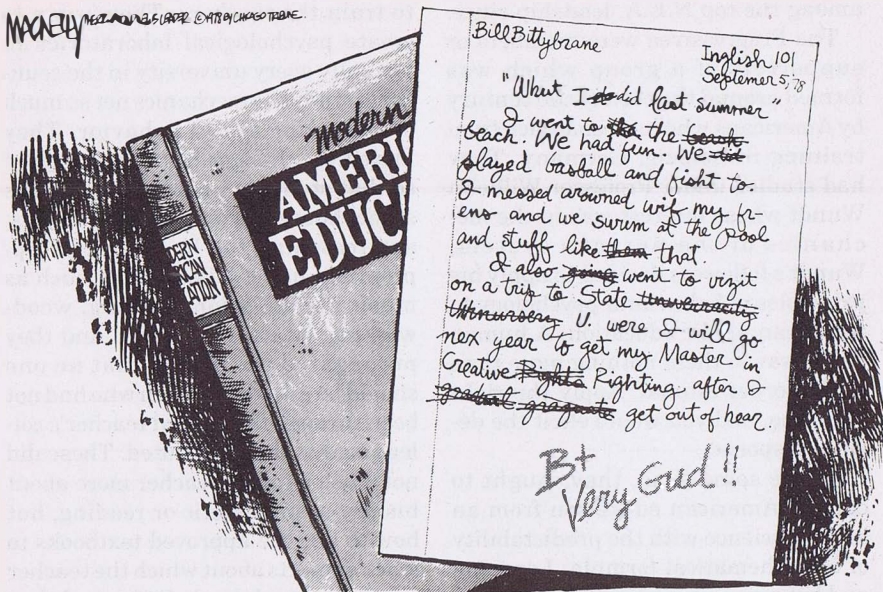 MACNELLY
©1978 CHICAGO TRIBUNE
modern
AMERI
EDUC
DERN
ICAN
ATION
Bill Bittybrane
Inglish 101
Septemer 5, 78
"What I do did last summer"
I went to the the beach
beach. We had fun. We
played basball and fight to.
I messed arowned wif my fr-
ens and we swum at the pool
and stuff like them that.
I also going went to vizit
on a trip to State
were I will go
nex year to get my Master in
Creative Righting after I
get out of hear.
B+
Very Gud!!